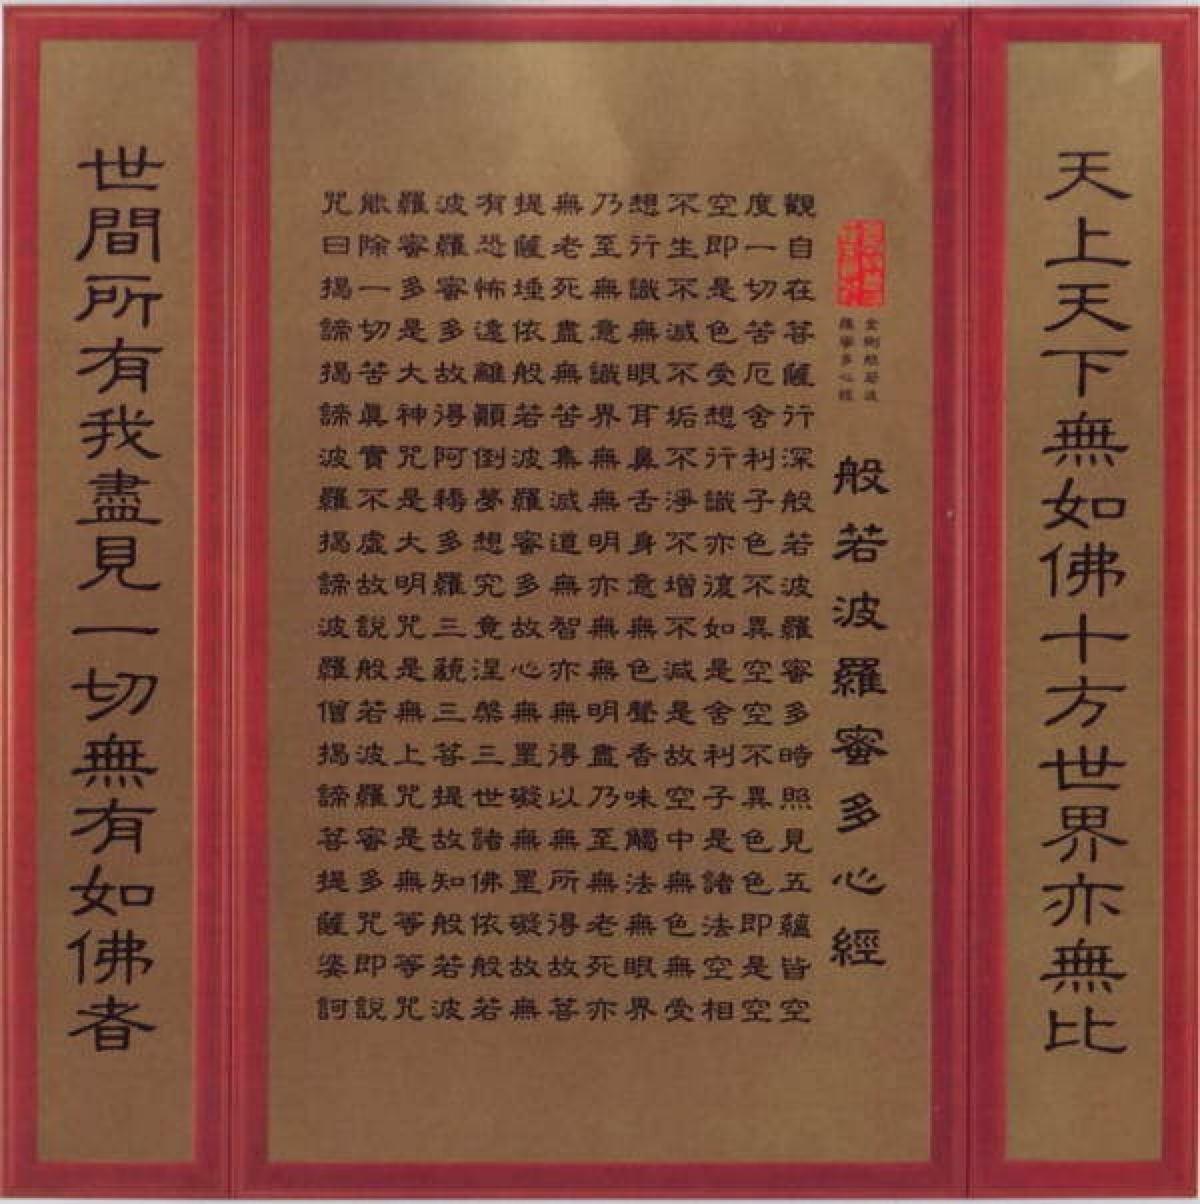 天上天下無如佛十方世界亦無比
金剛般若波
羅蜜多心經
般若波羅蜜多心經
觀自在菩薩行深般若波羅蜜多時照見五蘊皆空
度一切苦厄舍利子色不異空空不異色色即是空
空即是色受想行識亦復如是舍利子是諸法空相
不生不滅不垢不淨不增不減是故空中無色無受
想行識無眼耳鼻舌身意無色聲香味觸法無眼界
乃至無意識界無無明亦無無明盡乃至無老死亦
無老死盡無苦集滅道無智亦無得以無所得故菩
提薩埵依般若波羅蜜多故心無罣礙無罣礙故無
有恐怖遠離顛倒夢想究竟涅槃三世諸佛依般若
波羅蜜多故得阿耨多羅三藐三菩提故知般若波
羅蜜多是大神咒是大明咒是無上咒是無等等咒
能除一切苦眞實不虛故說般若波羅蜜多咒即說
咒曰揭諦揭諦波羅揭諦波羅僧揭諦菩提薩婆訶
世間所有我盡見一切無有如佛者